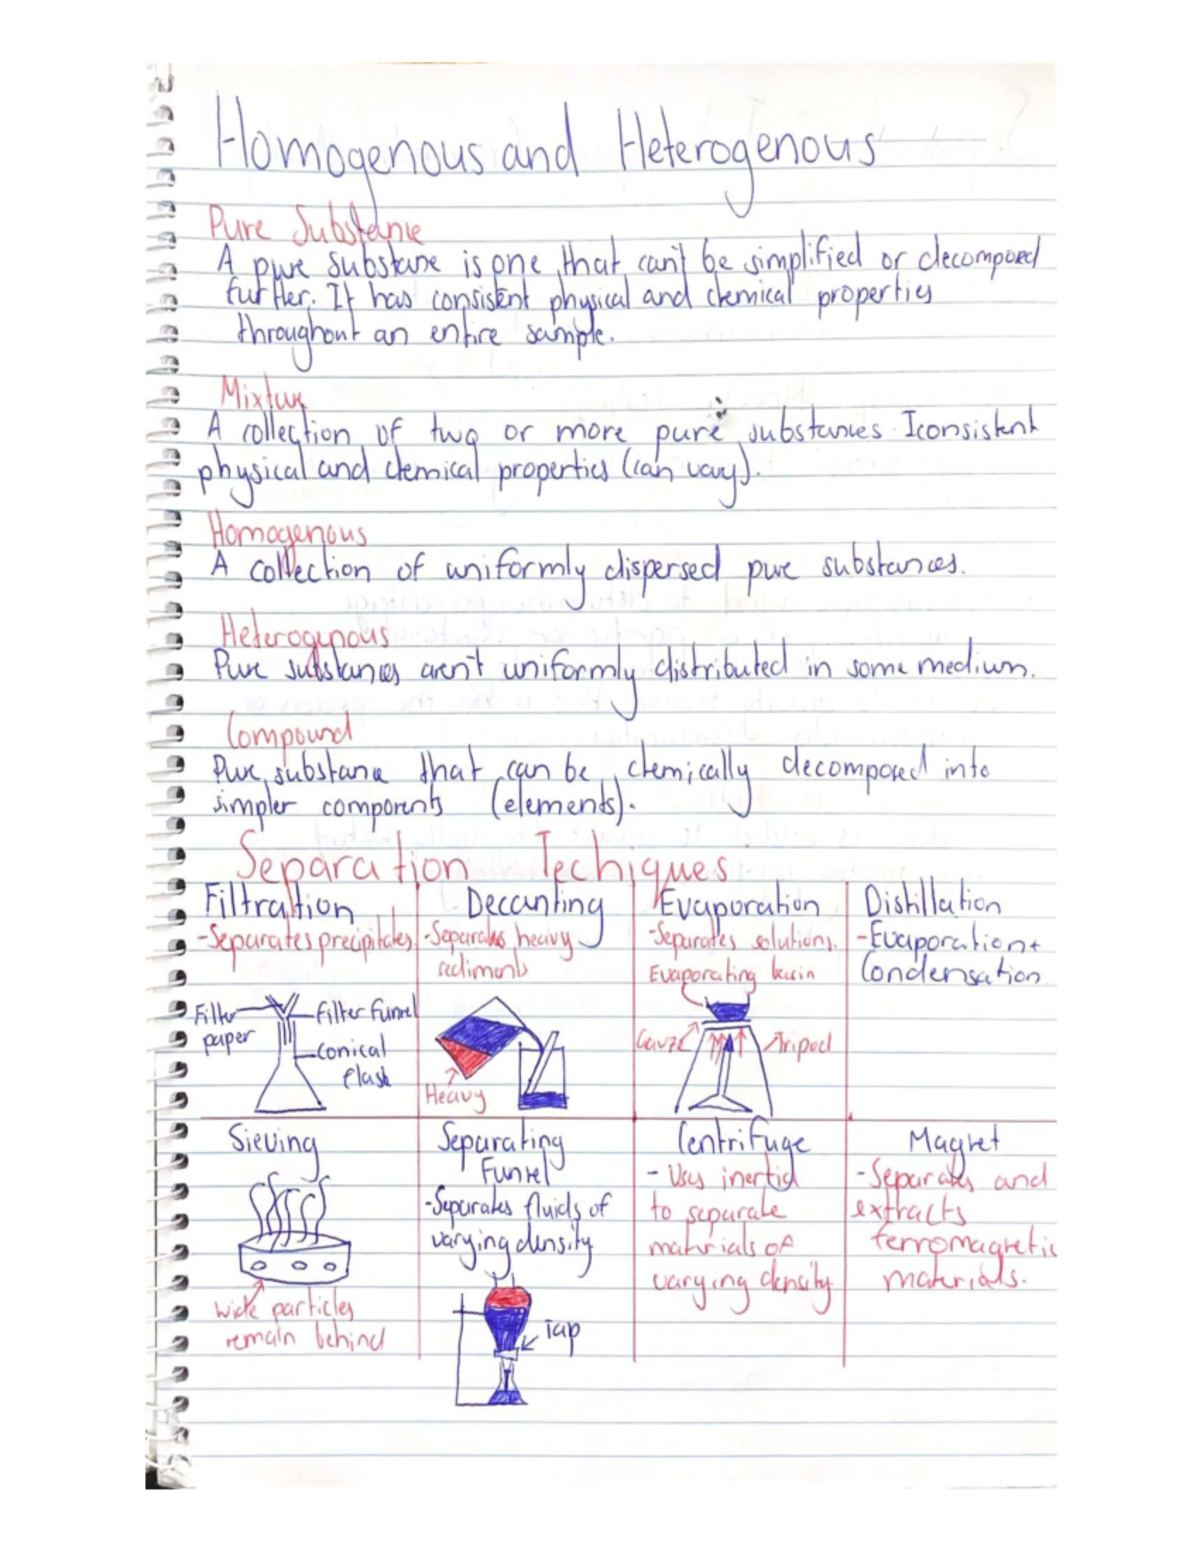 Homogenous and Heterogenous
Pure Substance
A pure substance is one that can't be simplified or decomposed
further. It has consistent physical and chemical properties
throughout an entire sample.
Mixture
A collection of two or more pure substances. Iconsistent
physical and chemical properties (can vary).
Homogenous
A collection of uniformly dispersed pure substances.
Heterogenous
Pure substances aren't uniformly distributed in some medium.
Compound
Pure substance that can be chemically decomposed into
simpler components (elements).
Separation Techiques
Filtration
-Separates precipitates
Filter paper
Filter funnel
Conical flask
Decanting
-Separates heavy
sediments
Heavy
Evaporation
-Separates solutions.
Evaporating basin
Gauze
Tripod
Distillation
-Evaporation+
Condensation
Sieving
wide particles
remain behind
Separating
Funnel
-Separates fluids of
varying density
Tap
Centrifuge
- Uses inertia
to separate
materials of
varying density
Magnet
-Separates and
extracts
ferromagnetic
materials.